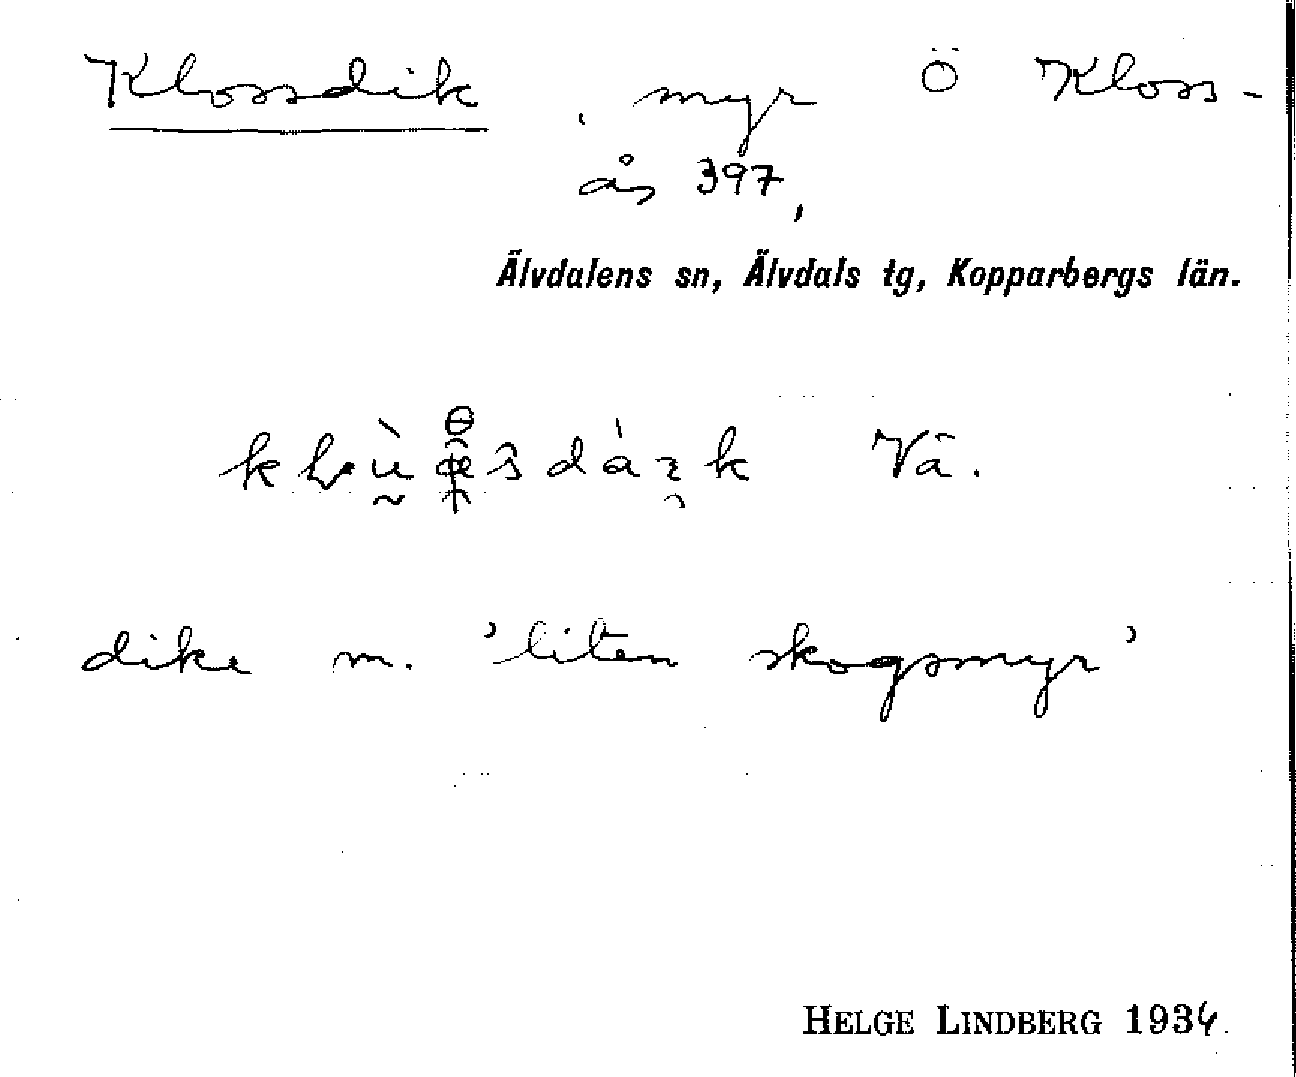 Klossdik, myr Ö Kloss-
ås 397,
Älvdalens sn, Älvdals tg, Kopparbergs län.
Vä.
dike m. 'liten skogsmyr'
HELGE LINDBERG 1934.